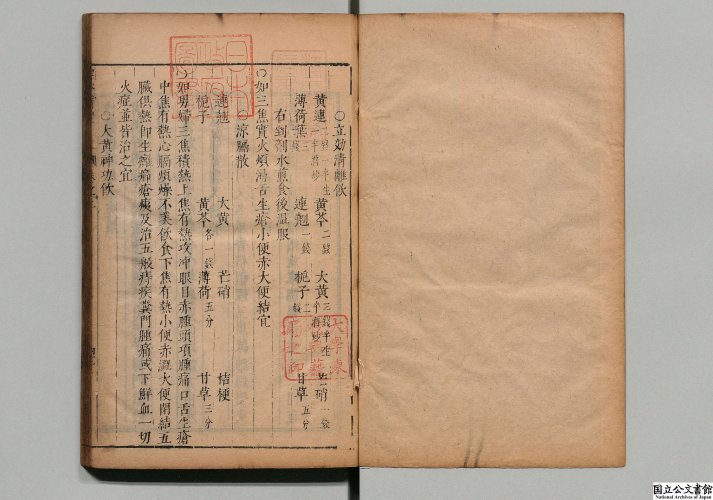 ○立効清離飲
黄連二錢一半生一半酒炒 黄芩二錢 大黄三錢半生半酒炒 芒硝一錢
薄荷葉三 連翹一錢 梔子二錢 甘草五分
右剉劑水煎食後温服
○如三焦實火煩渴舌生瘡小便赤大便結宜
○涼膈散
連翹 大黄 芒硝 桔梗
梔子 黄芩各一錢 薄荷五分 甘草三分
○如男婦三焦積熱上焦有熱攻冲眼目赤腫頭項腫痛口舌生瘡
中焦有熱心膈煩燥不美飲食下焦有熱小便赤澀大便閉結五
臟俱熱即生癰癤瘡痍及治五般痔疾糞門腫痛或下鮮血一切
火症並皆治之宜
○大黄神功飲
国立公文書館
National Archives of Japan